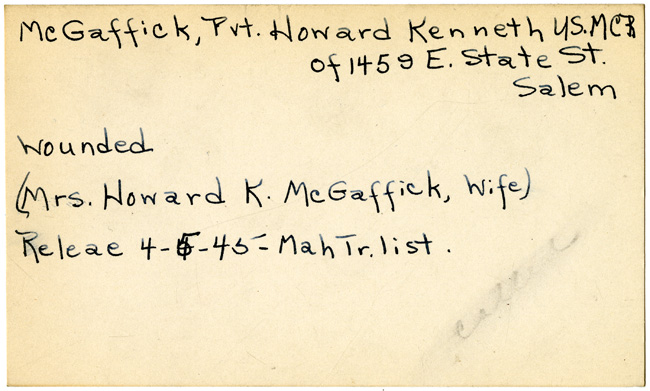 McGaffick, Pvt. Howard Kenneth US.MCR
of 1459 E. State St.
Salem
Wounded
(Mrs. Howard K. McGaffick, Wife)
Releae 4-5-45- Mah Tr. list.
called